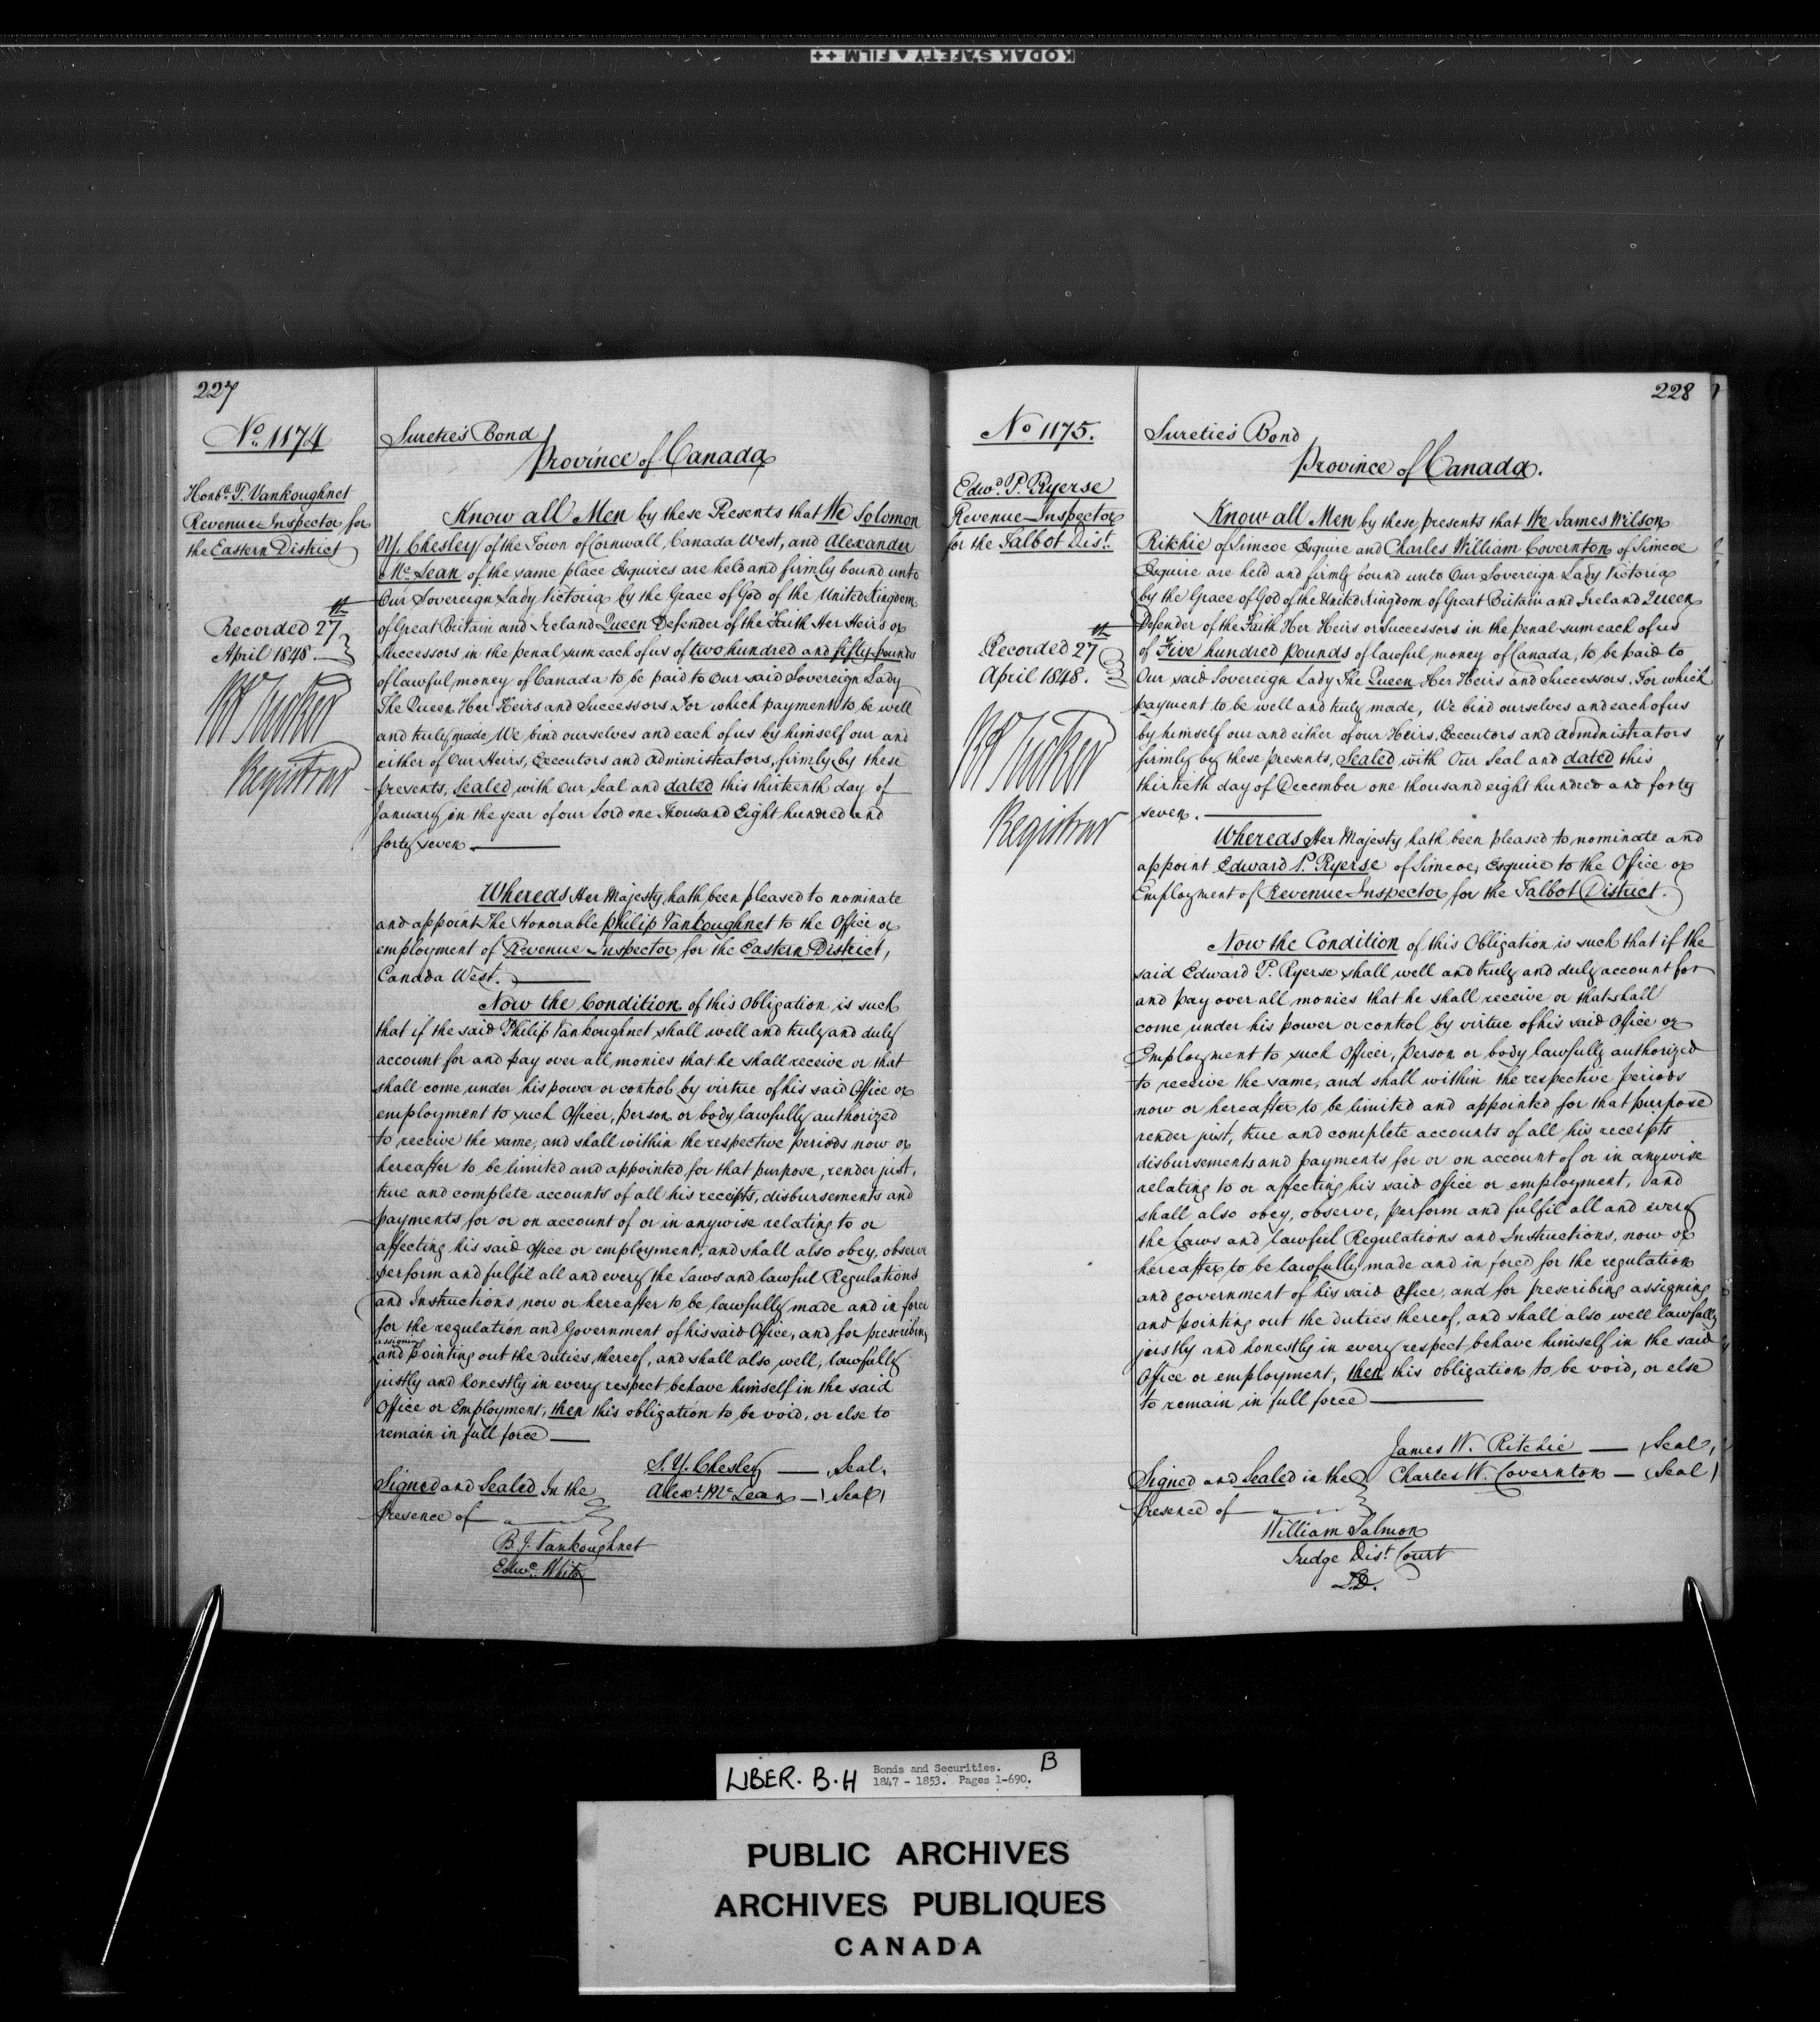 KODAK SAFETY ▲ FILM ++
227
No. 1174
Honble. P. Vankoughnet
Revenue Inspector for
the Eastern District
Recorded 27th
April 1848.
Registrar
Sureties Bond
Province of Canada
Know all Men by these Presents that We Solomon
Y. Chesley of the Town of Cornwall, Canada West, and Alexander
McLean of the same place Esquires are held and firmly bound unto
Our Sovereign Lady Victoria by the Grace of God of the United Kingdom
of Great Britain and Ireland Queen Defender of the Faith Her Heirs or
Successors in the penal sum each of us of two hundred and fifty pounds
of lawful money of Canada to be paid to Our said Sovereign Lady
The Queen Her Heirs and Successors For which payment to be well
and truly made, We bind ourselves and each of us by himself our and
either of Our Heirs, Executors and Administrators, firmly by these
presents, Sealed with Our Seal and dated this thirteenth day of
January in the year of our Lord one Thousand Eight hundred and
forty seven
Whereas Her Majesty hath been pleased to nominate
and appoint The Honorable Philip Vankoughnet to the Office or
employment of Revenue Inspector for the Eastern District,
Canada West.
Now the Condition of this Obligation is such
that if the said Philip Vankoughnet shall well and truly and duly
account for and pay over all monies that he shall receive or that
shall come under his power or control by virtue of his said Office or
employment to such Officer, person or body lawfully authorized
to receive the same, and shall within the respective periods now or
hereafter to be limited and appointed for that purpose, render just,
true and complete accounts of all his receipts, disbursements and
payments for or on account of or in anywise relating to or
affecting his said office or employment, and shall also obey, observe
perform and fulfil all and every the Laws and lawful Regulations
and Instructions now or hereafter to be lawfully made and in force
for the regulation and Government of his said Office, and for prescribing
assigning
and pointing out the duties, thereof, and shall also well, lawfully
justly and honestly in every respect behave himself in the said
Office or Employment, then this obligation to be void, or else to
remain in full force
S. Y. Chesley — Seal
Signed and Sealed In the Alexr. McLean — Seal
presence of
B. J. Vankoughnet
Edwd. White
228
No 1175.
Edwd. P. Ryerse
Revenue Inspector
for the Talbot Dist.
Recorded 27th
April 1848.
Registrar
Sureties Bond
Province of Canada.
Know all Men by these presents that We James Wilson
Ritchie of Simcoe Esquire and Charles William Covernton of Simcoe
Esquire are held and firmly bound unto Our Sovereign Lady Victoria
by the Grace of God of the United Kingdom of Great Britain and Ireland Queen
Defender of the Faith Her Heirs or Successors in the penal sum each of us
of Five hundred Pounds of lawful money of Canada, to be paid to
Our said Sovereign Lady The Queen Her Heirs and Successors. For which
payment to be well and truly made, We bind ourselves and each of us
by himself our and either of our Heirs, Executors and Administrators
firmly by these presents, Sealed with Our Seal and dated this
thirtieth day of December one thousand eight hundred and forty
seven.
Whereas Her Majesty hath been pleased to nominate and
appoint Edward P. Ryerse of Simcoe, Esquire to the Office or
Employment of Revenue Inspector for the Talbot District.
Now the Condition of this Obligation is such that if the
said Edward P. Ryerse shall well and truly and duly account for
and pay over all monies that he shall receive or that shall
come under his power or control by virtue of his said Office or
Employment to such Officer, Person or body lawfully authorized
to receive the same, and shall within the respective periods
now or hereafter to be limited and appointed for that purpose
render just, true and complete accounts of all his receipts
disbursements and payments for or on account of or in anywise
relating to or affecting his said Office or employment, and
shall also obey, observe, perform and fulfil all and every
the Laws and lawful Regulations and Instructions, now or
hereafter to be lawfully made and in forced for the regulation
and government of his said Office, and for prescribing assigning
and pointing out the duties thereof, and shall also well lawfully
justly and honestly in every respect behave himself in the said
Office or employment, then this obligation to be void, or else
to remain in full force
James W. Ritchie — Seal
Signed and Sealed in the Charles W. Covernton — (Seal)
presence of
William Salmon
Judge Dist. Court
T.D.
LIBER. B.H Bonds and Securities. B
1847 - 1853. Pages 1-690.
PUBLIC ARCHIVES
ARCHIVES PUBLIQUES
CANADA